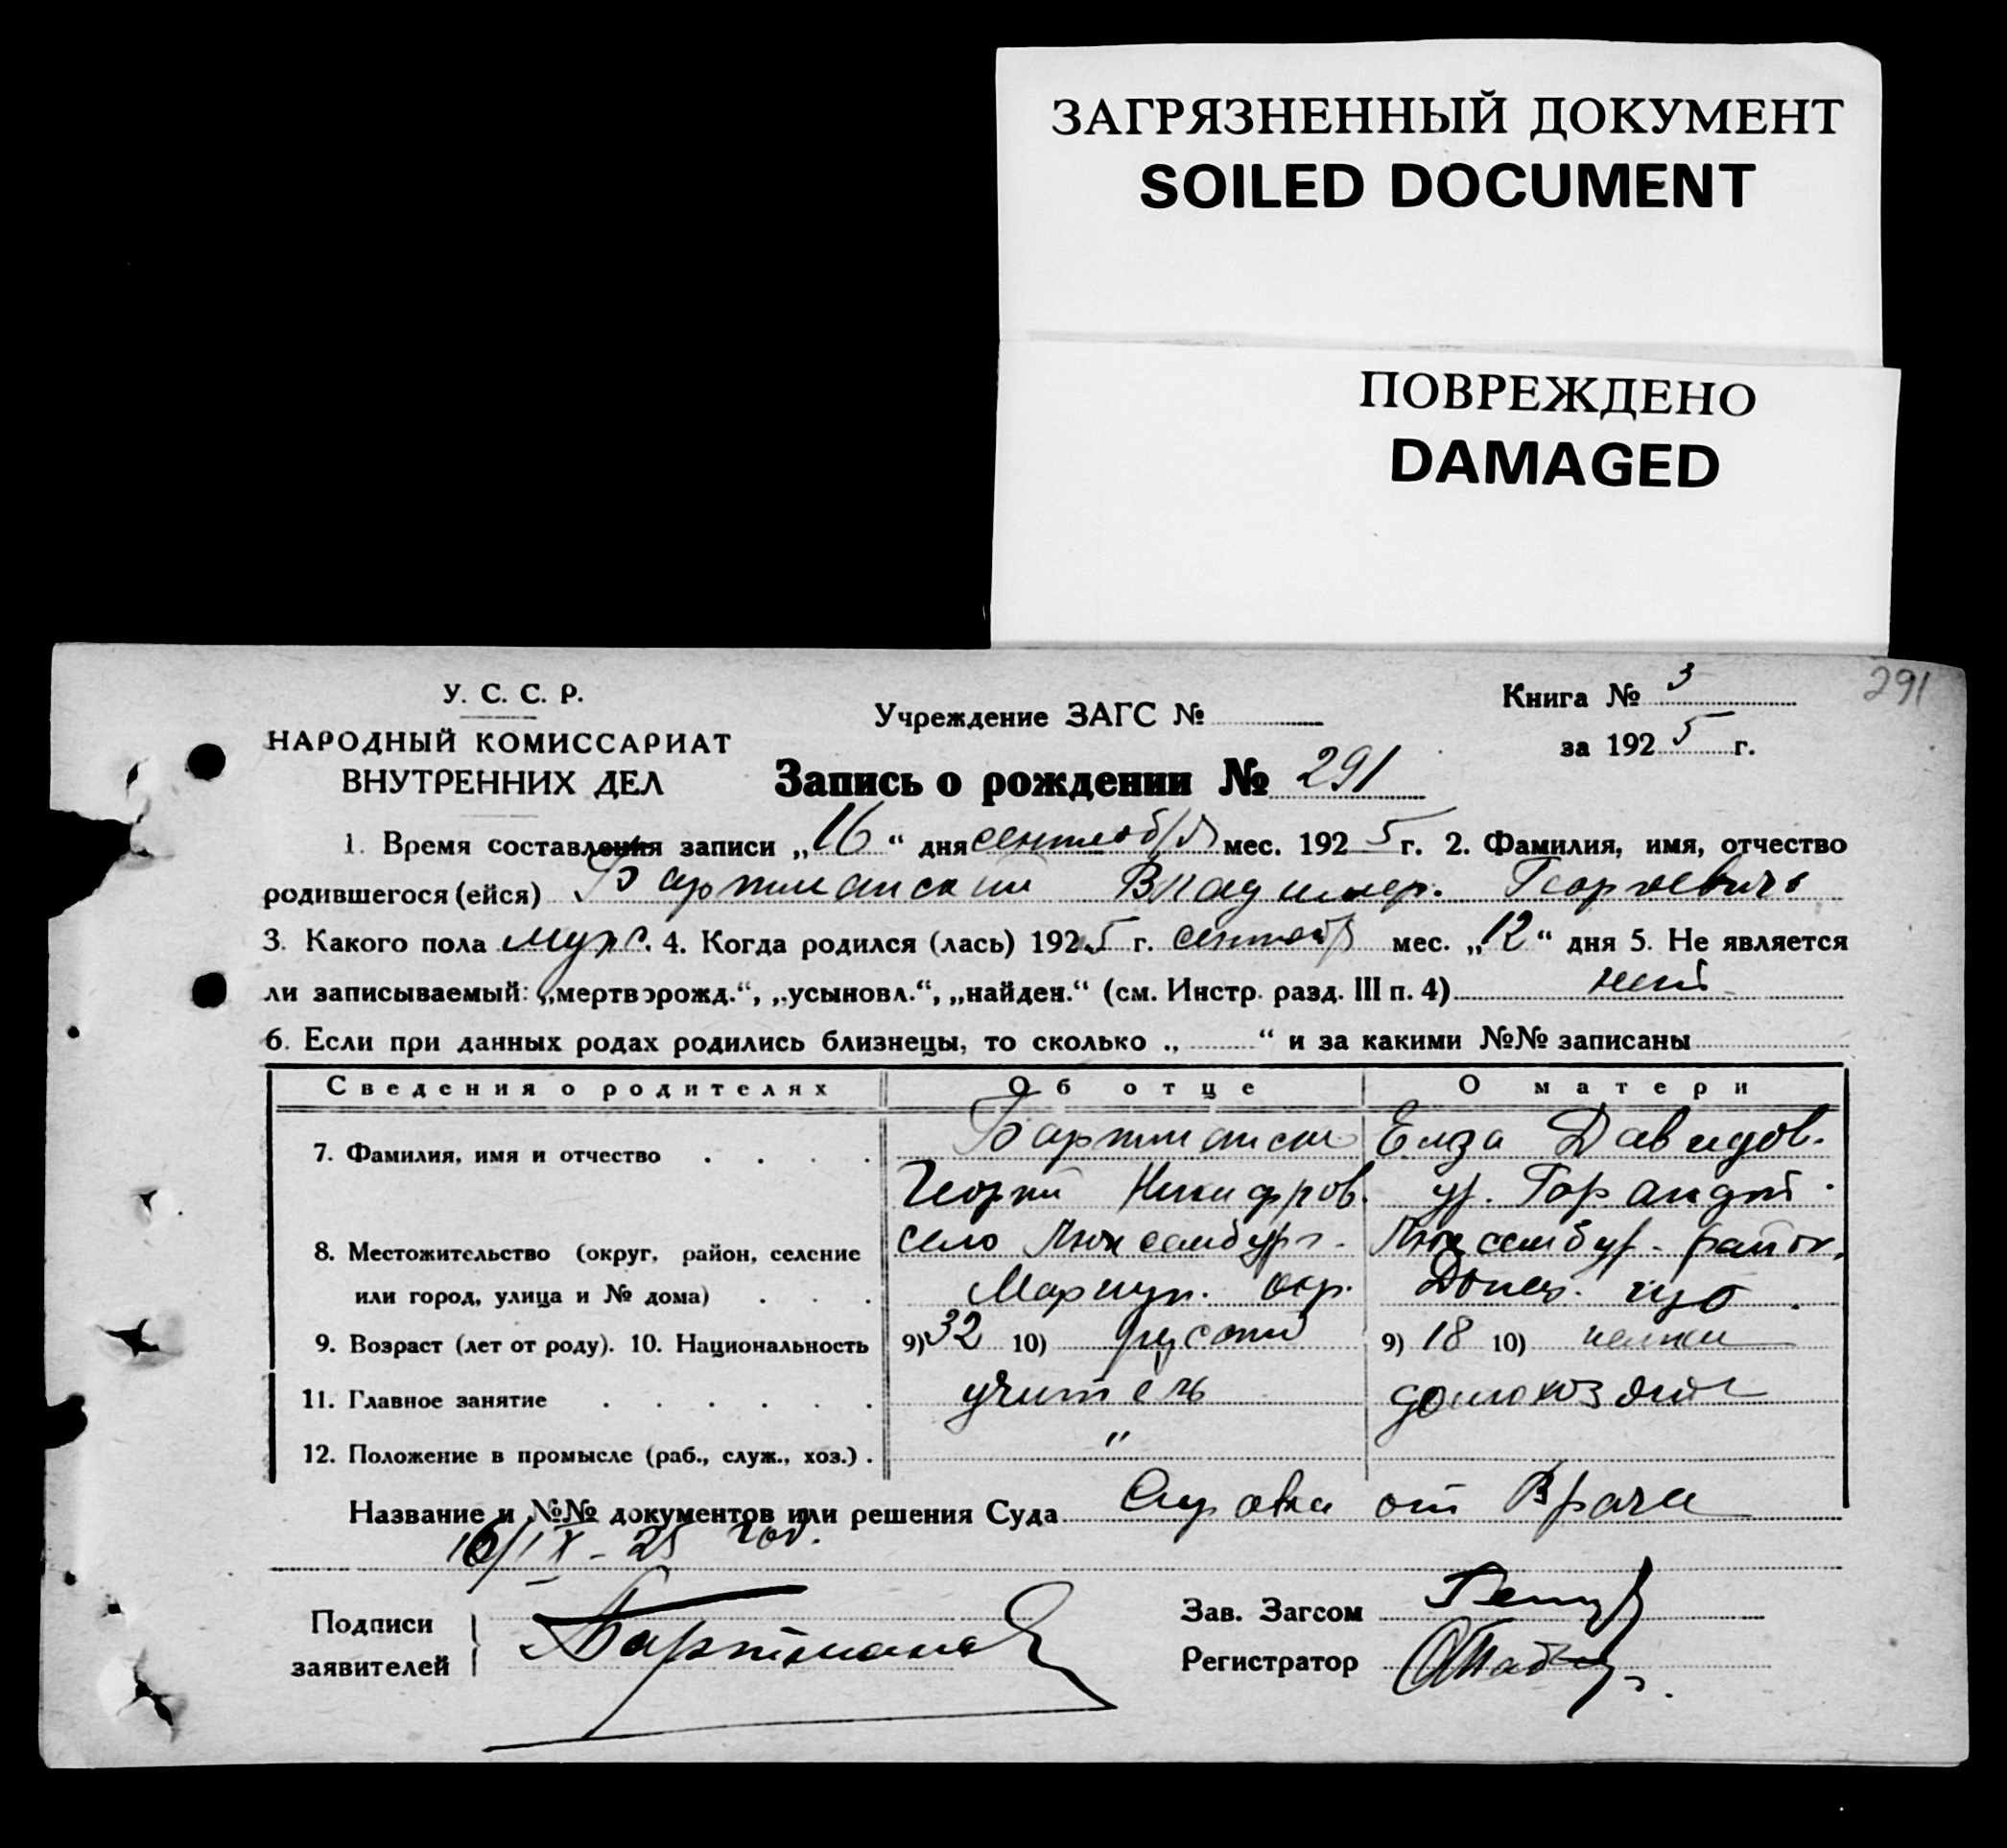 ЗАГРЯЗНЕННЫЙ ДОКУМЕНТ
SOILED DOCUMENT
ПОВРЕЖДЕНО
DAMAGED
291
У. С. С. Р.
НАРОДНЫЙ КОМИССАРИАТ
ВНУТРЕННИХ ДЕЛ
Учреждение ЗАГС №
Книга № 3
за 1925 г.
Запись о рождении № 291
1. Время составления записи „16“ дня сентября мес. 1925 г. 2. Фамилия, имя, отчество
родившегося (ейся) Бартманский Владимир. Георгиевичь
3. Какого пола муж. 4. Когда родился (лась) 1925 г. сентябр мес. „12“ дня 5. Не является
ли записываемый: „мертворожд.“, „усыновл.“, „найден.“ (см. Инстр. разд. III п. 4) нет
6. Если при данных родах родились близнецы, то сколько „ “ и за какими №№ записаны
Сведения о родителях Об отце О матери
7. Фамилия, имя и отчество Бартмански Елза Давидов.
Георгий Никифров. ур.
8. Местожительство (округ, район, селение село Люксембург. Люксембур. район,
или город, улица и № дома) Мариуп. окр. Донец. губ.
9. Возраст (лет от роду). 10. Национальность 9) 32 10) русский 9) 18 10) немки
11. Главное занятие учитель домохозяйк
12. Положение в промысле (раб., служ., хоз.) "
Название и №№ документов или решения Суда Справка от Врача
16/IX-25 год.
Подписи
заявителей
Зав. Загсом
Регистратор